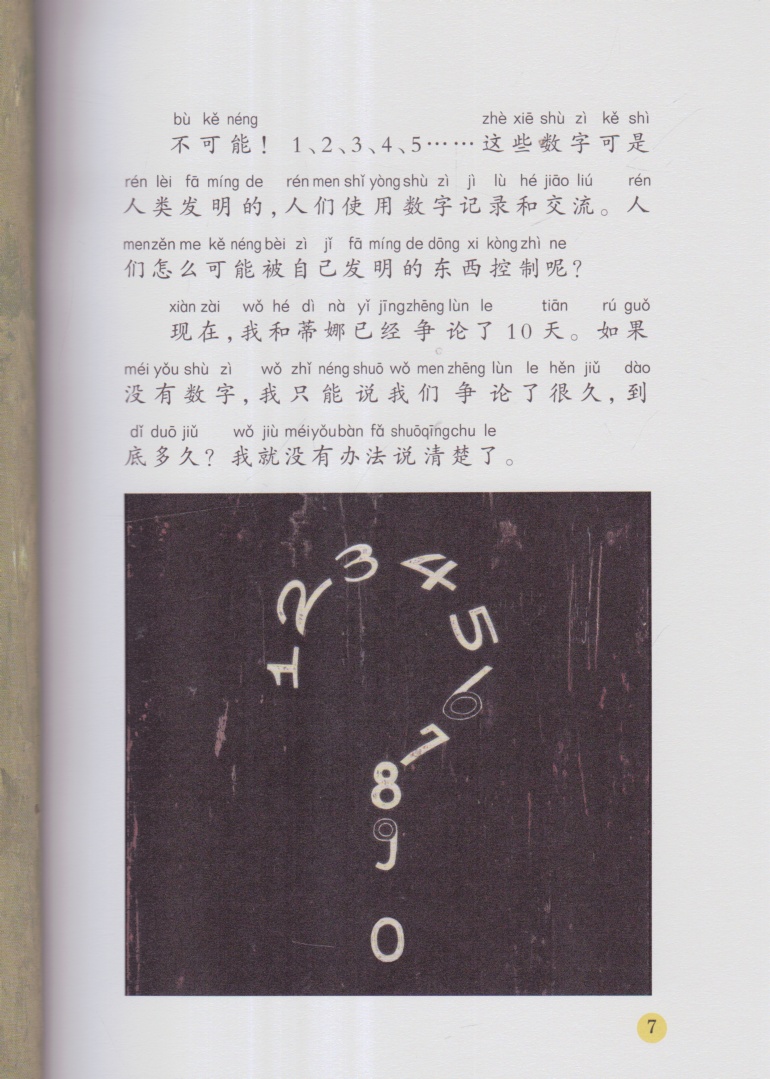 bù kě néng zhè xiē shù zì kě shì
不可能！ 1、2、3、4、5……这些数字可是
rén lèi fā míng de rén men shǐ yòng shù zì jì lù hé jiāo liú rén
人类发明的，人们使用数字记录和交流。人
men zěn me kě néng bèi zì jǐ fā míng de dōng xi kòng zhì ne
们怎么可能被自己发明的东西控制呢？
xiàn zài wǒ hé dì nà yǐ jīng zhēng lùn le tiān rú guǒ
现在，我和蒂娜已经争论了10天。如果
méi yǒu shù zì wǒ zhǐ néng shuō wǒ men zhēng lùn le hěn jiǔ dào
没有数字，我只能说我们争论了很久，到
dǐ duō jiǔ wǒ jiù méi yǒu bàn fǎ shuō qīng chu le
底多久？我就没有办法说清楚了。
1
2
3
4
5
6
7
8
9
0
7